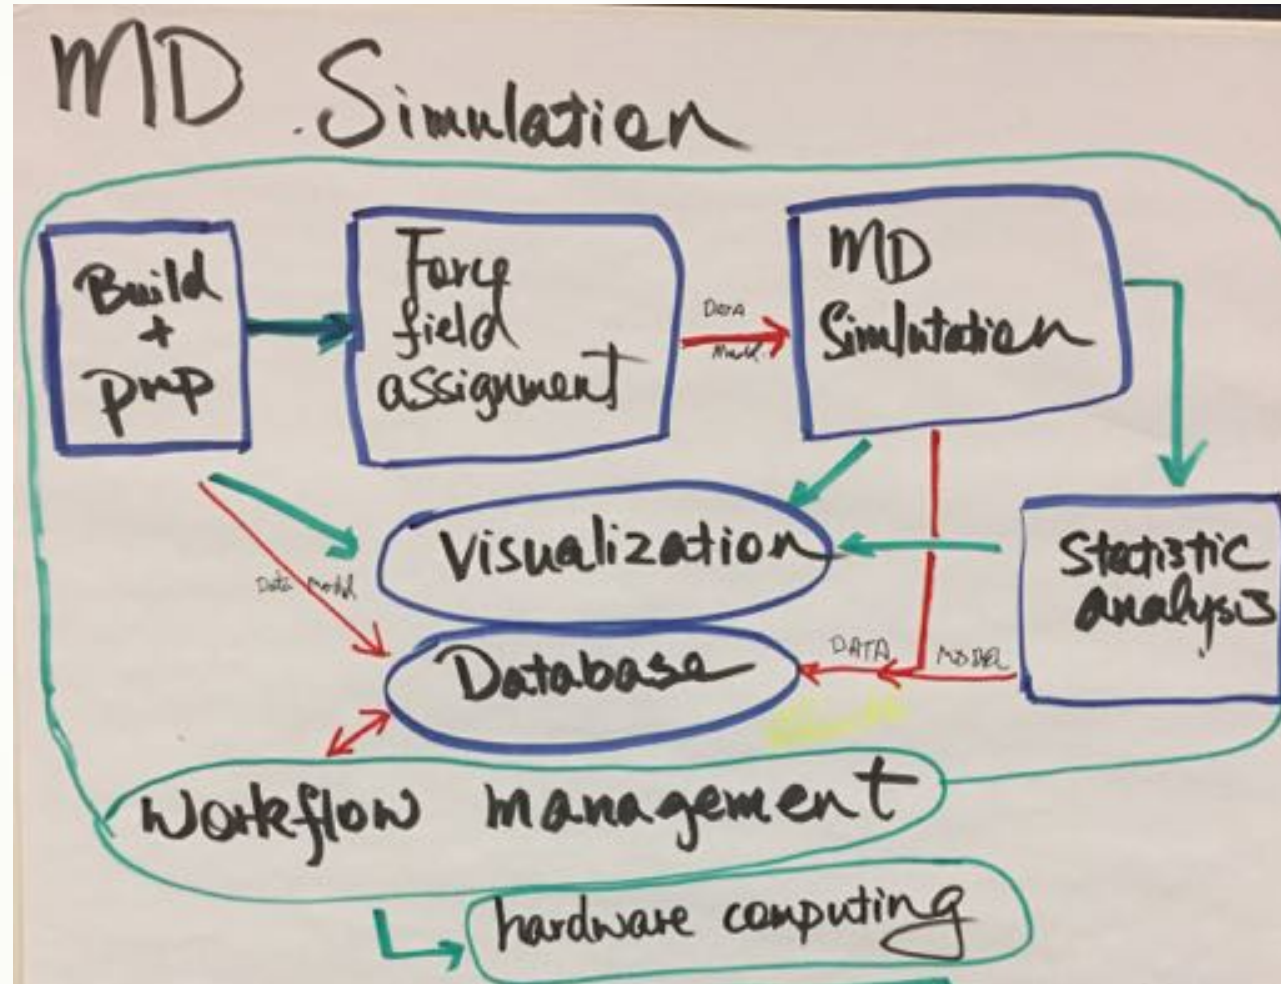 MD Simulation
Build
+
prep
Force
field
assignment
DATA
Model
MD
Simlutation
Visualization
Statistic
analysis
Data Model
Database
DATA MODEL
Workflow management
hardware computing